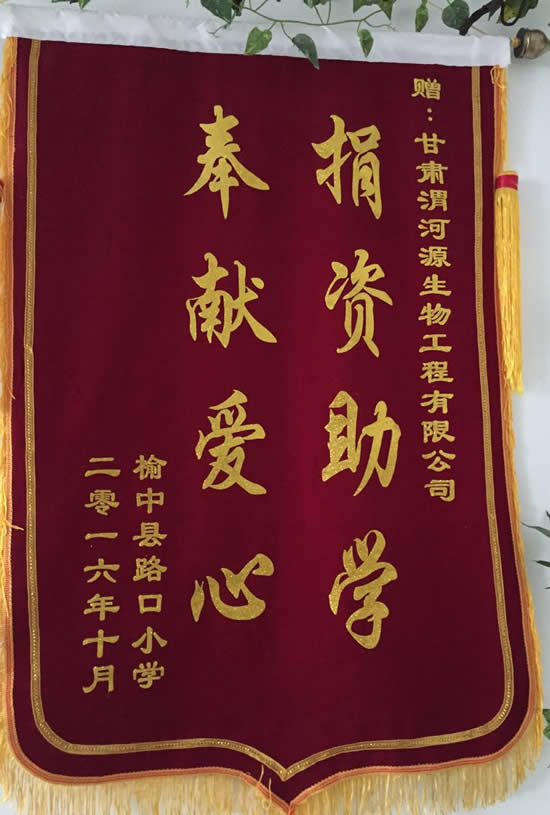 赠：甘肃渭河源生物工程有限公司
捐资助学
奉献爱心
榆中县路口小学
二零一六年十月